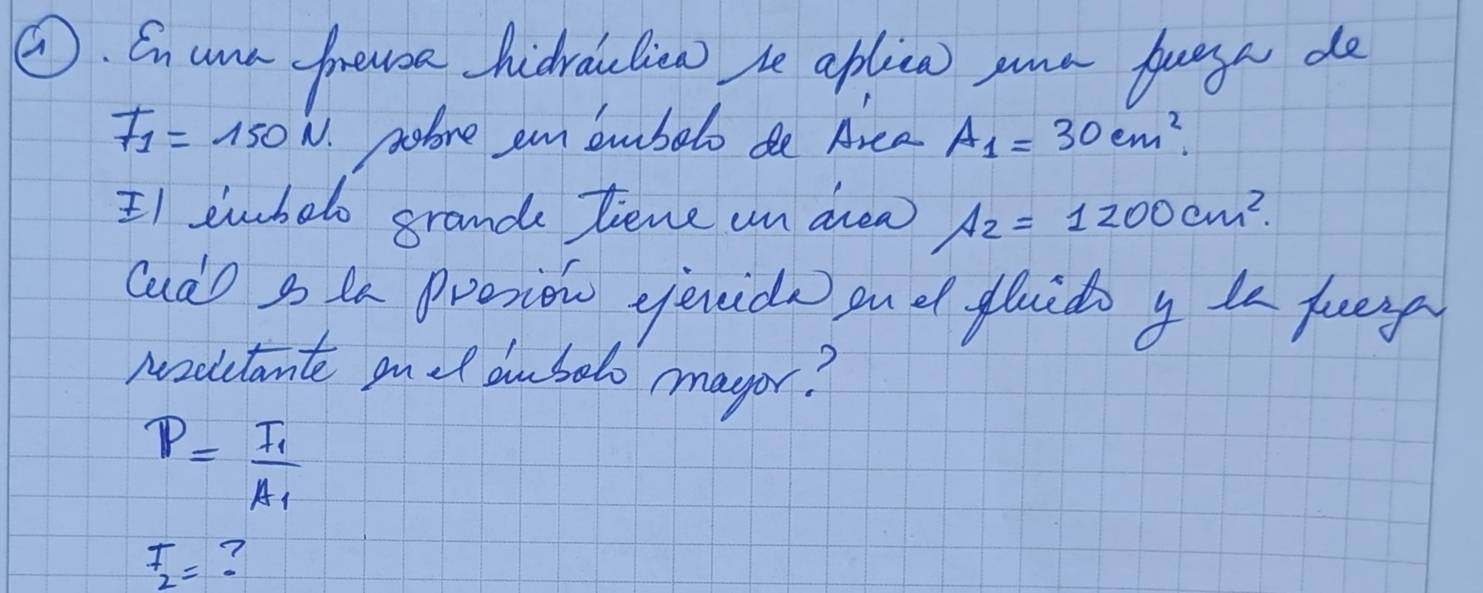 ①. En una prensa hidráulica se aplica una fuerza de
F1 = 150 N. sobre un émbolo de Área A1 = 30 cm².
El émbolo grande tiene un área A2 = 1200 cm².
Cuál es la Presión ejercida en el fluido y la fuerza
resultante en el émbolo mayor?
P = F1
A1
F2 = ?